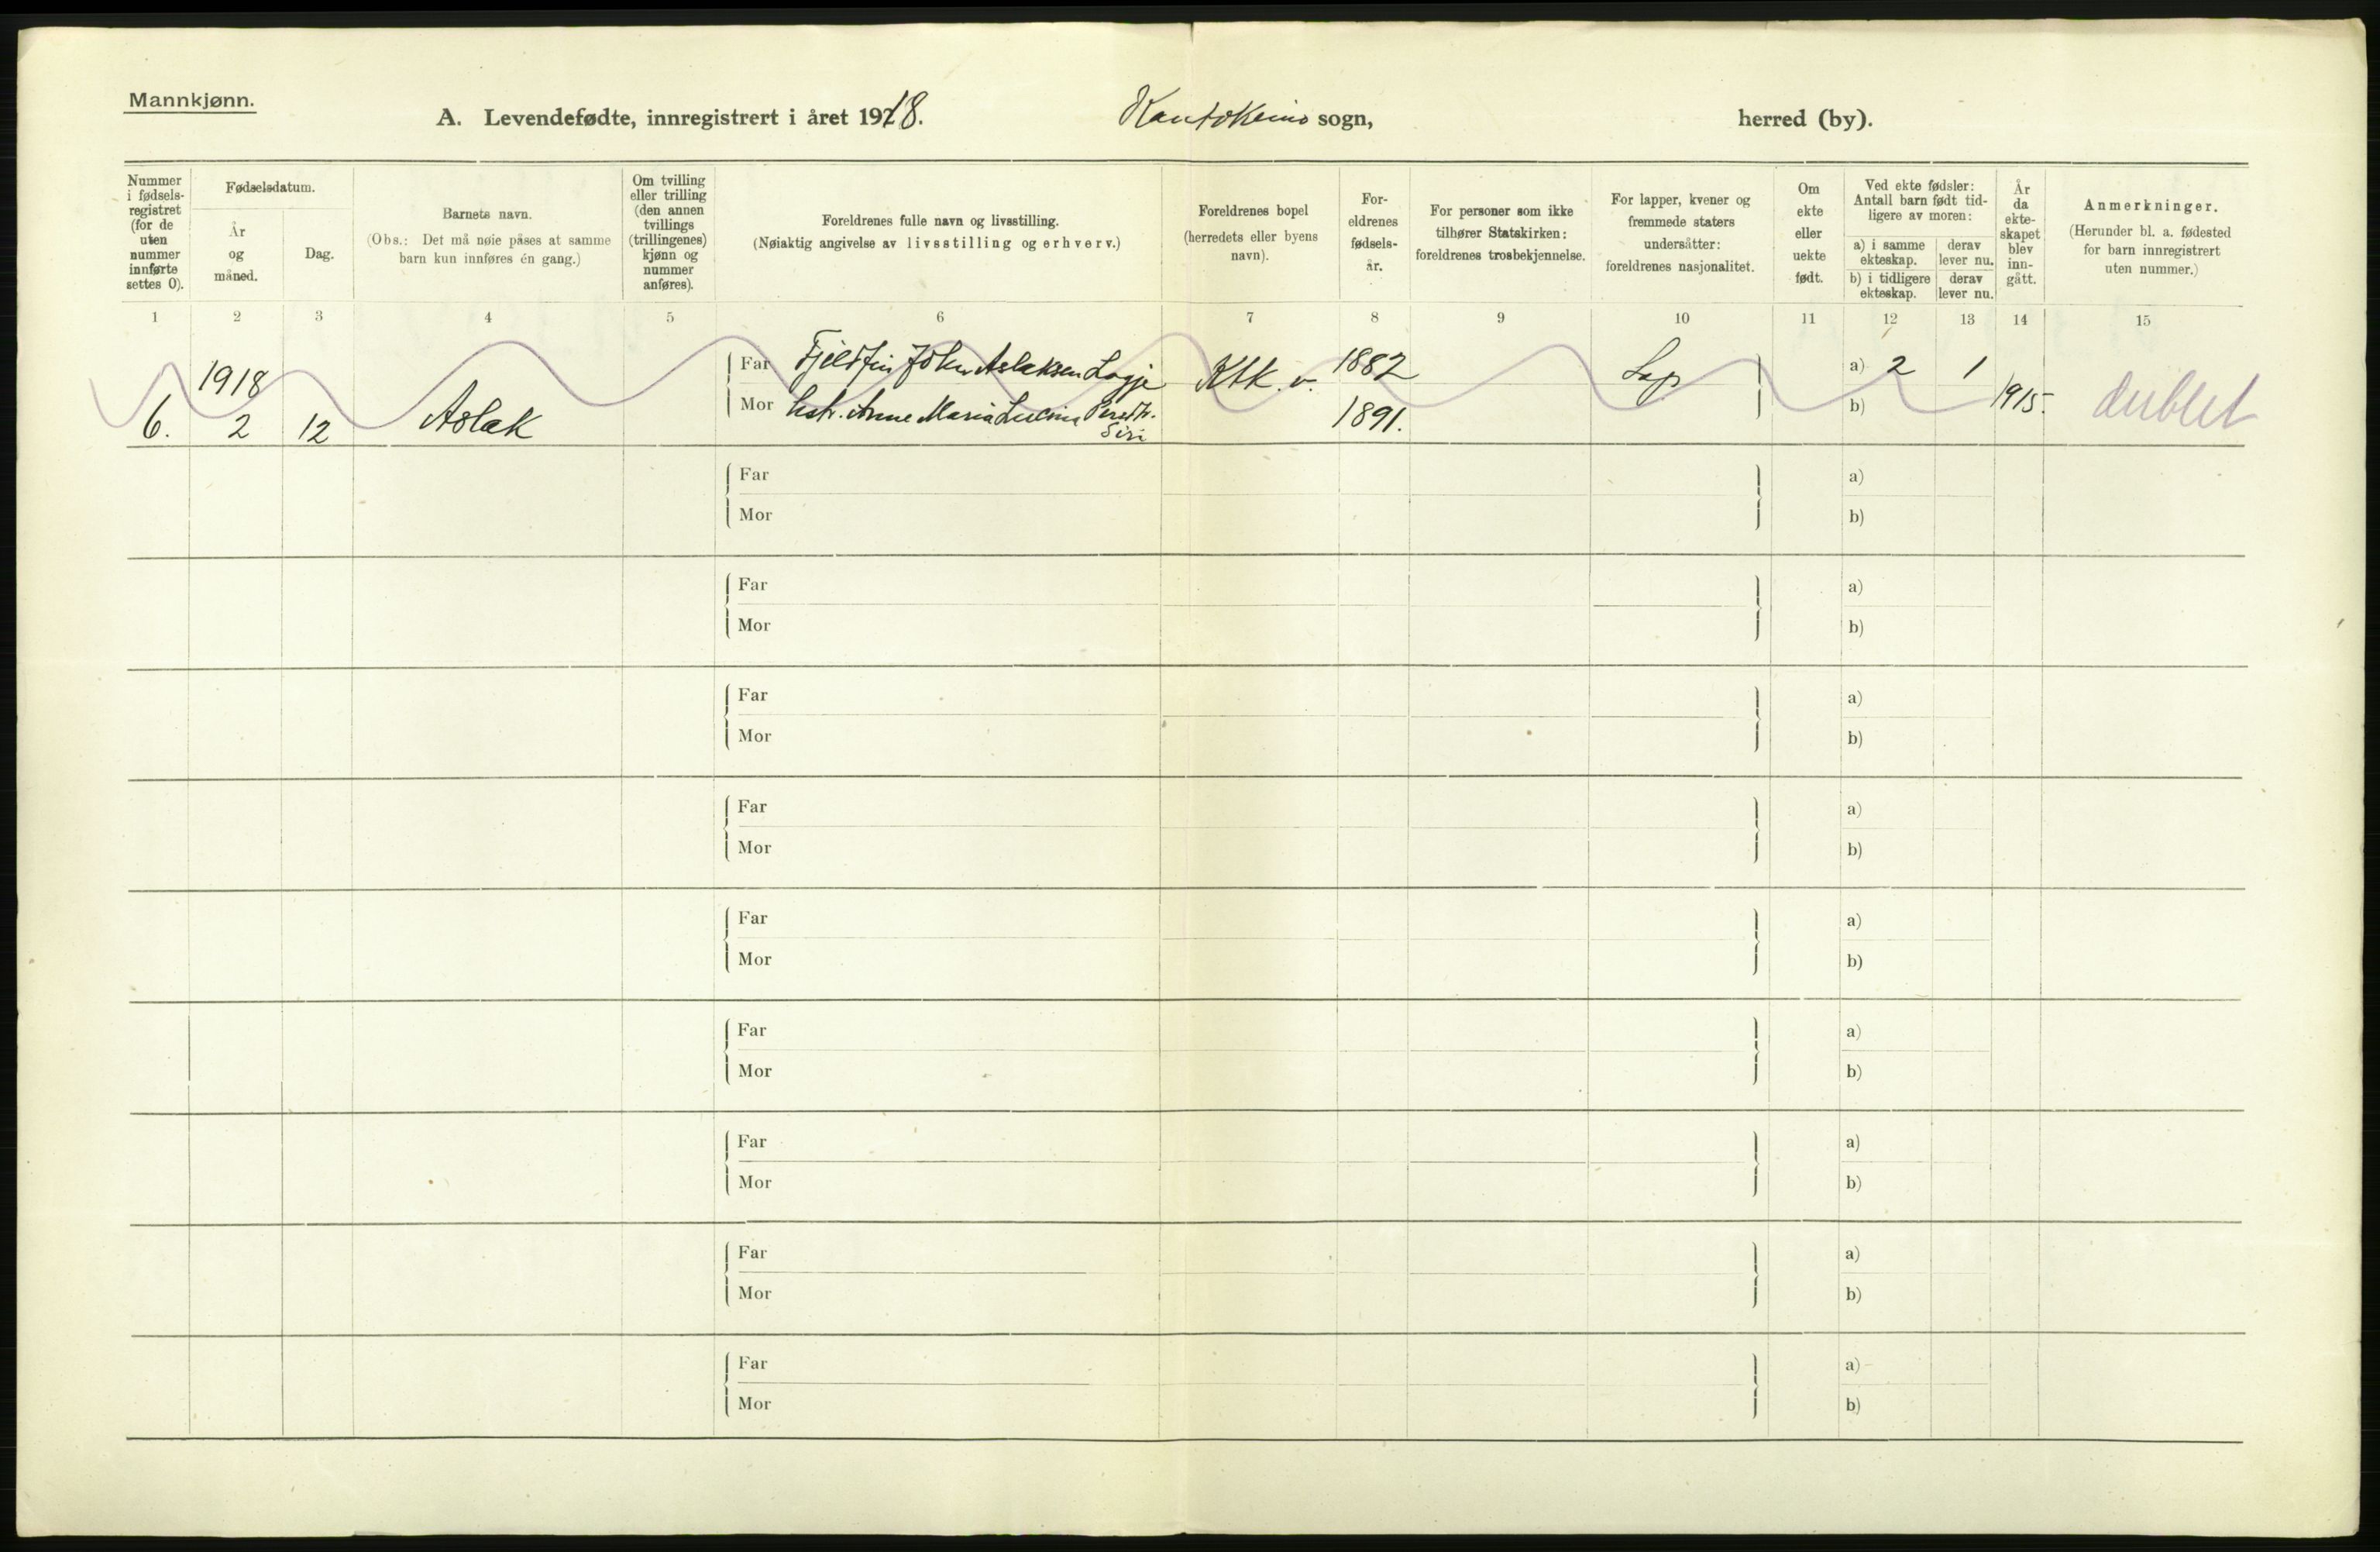 Mannkjønn.
A. Levendefødte, innregistrert i året 1918. Kautokeino sogn, herred (by).
Nummer i fødsels-registret (for de uten nummer innførte settes 0).
Fødselsdatum.
År og måned.
Dag.
Barnets navn.
(Obs.: Det må nøie påses at samme barn kun innføres én gang.)
Om tvilling eller trilling (den annen tvillings (trillingenes) kjønn og nummer anføres).
Foreldrenes fulle navn og livsstilling.
(Nøiaktig angivelse av livsstilling og erhverv.)
Foreldrenes bopel (herredets eller byens navn).
For-eldrenes fødsels-år.
For personer som ikke tilhører Statskirken: foreldrenes trosbekjennelse.
For lapper, kvener og fremmede staters undersåtter: foreldrenes nasjonalitet.
Om ekte eller uekte født.
Ved ekte fødsler: Antall barn født tid-ligere av moren:
a) i samme ekteskap.
derav lever nu.
b) i tidligere ekteskap.
derav lever nu.
År da ekte-skapet blev inn-gått.
Anmerkninger.
(Herunder bl. a. fødested for barn innregistrert uten nummer.)
1 2 3 4 5 6 7 8 9 10 11 12 13 14 15
1918 Far Fjeldfin John Aslaksen Logje Ktk. v. 1882 Lap a) 2 1
6. 2 12 Aslak Mor hstr. Anne Maria 1891. b) 1915. dublet
Siri
Far a)
Mor b)
Far a)
Mor b)
Far a)
Mor b)
Far a)
Mor b)
Far a)
Mor b)
Far a)
Mor b)
Far a)
Mor b)
Far a)
Mor b)
Far a)
Mor b)